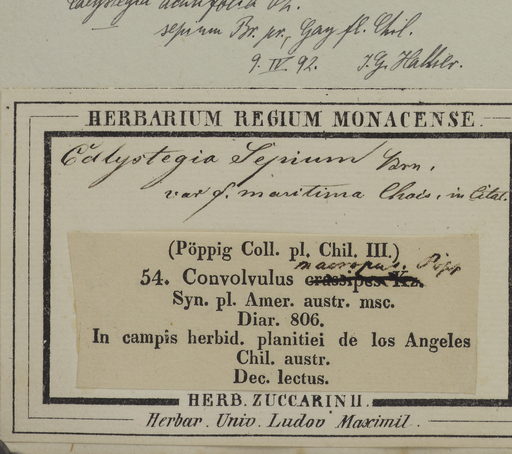 Calystegia
sepium Br. pr., Gay fl. Chil.
9. IV. 92. J. G. Hallier.
HERBARIUM REGIUM MONACENSE.
Calystegia Sepium Brn.
var δ. maritima Chois. in Litt.
(Pöppig Coll. pl. Chil. III.)
macropus. Pöpp
54. Convolvulus crassipes Kz.
Syn. pl. Amer. austr. msc.
Diar. 806.
In campis herbid. planitiei de los Angeles
Chil. austr.
Dec. lectus.
HERB. ZUCCARINII.
Herbar. Univ. Ludov Maximil.